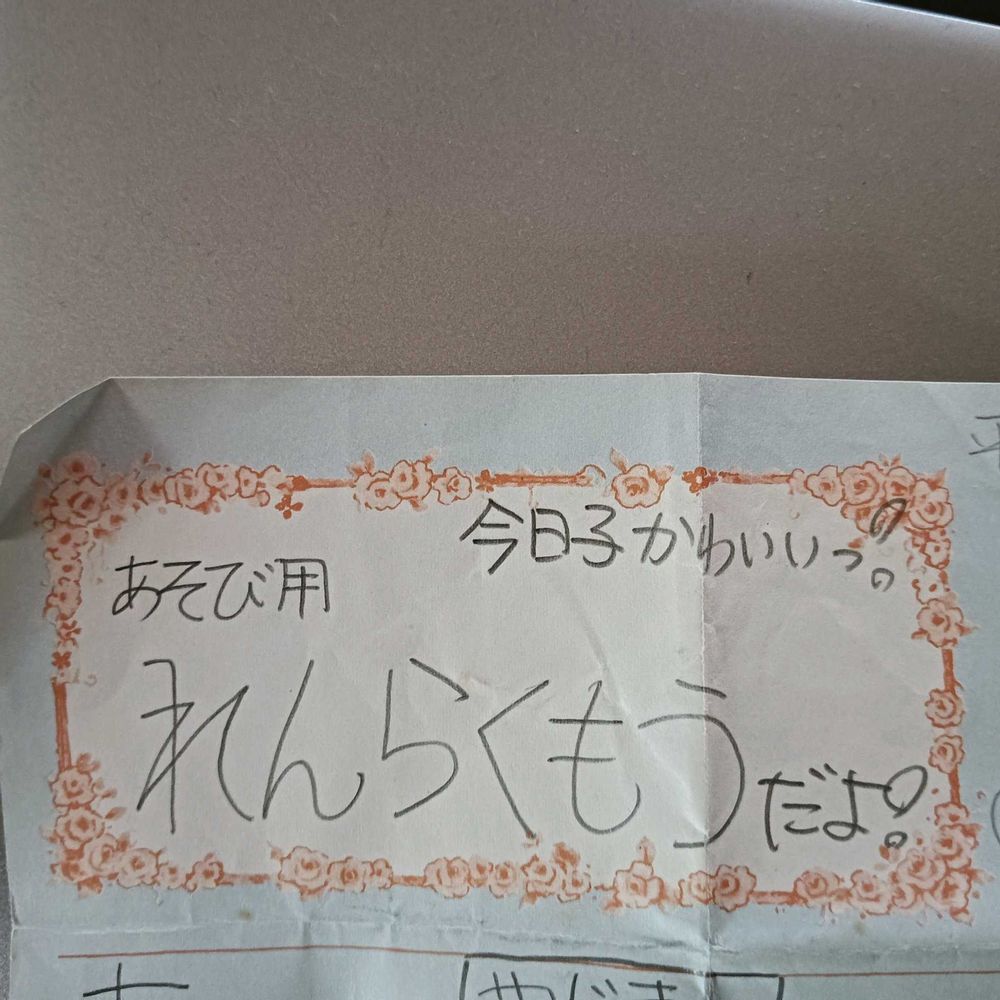 今日子かわいいっ!
あそび用
れんらくもう
だよ!